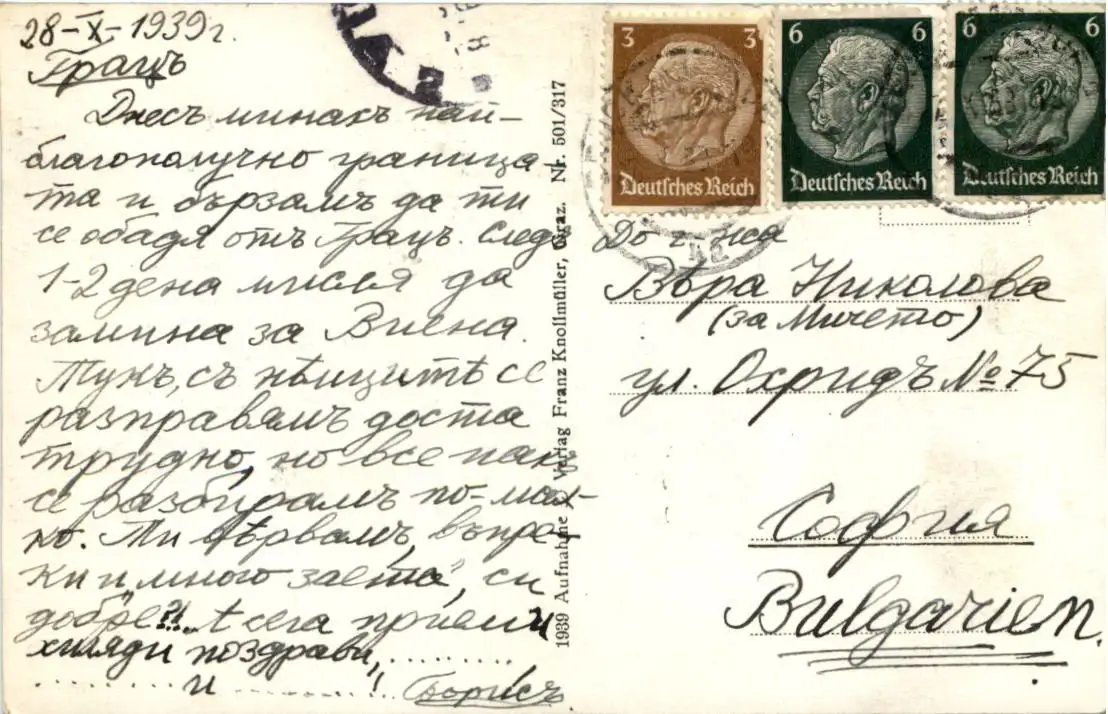 28-X-1939г.
Грацъ
Днесъ минахъ най-
благополучно граница-
та и бързамъ да ти
се обадя отъ Грацъ. След
1-2 дена мисля да
замина за Виена.
Тукъ, съ нѣмцитѣ се
разправямъ доста
трудно, но все пакъ
се разбирамъ по-мал-
ко. Ти вѣрвамъ, въпре-
ки „много заета“, си
добре?!.. А сега приеми
хиляди поздрави,..........
.......... и ..........! Борисъ
1939 Aufnahme u. Verlag Franz Knollmüller, Graz. Nr. 501/317
3 3
Deutsches Reich
6 6
Deutsches Reich
6 6
Deutsches Reich
До г-жа
Вѣра Николова
(за Мичето)
ул. Охридъ № 75
София
Bulgarien.